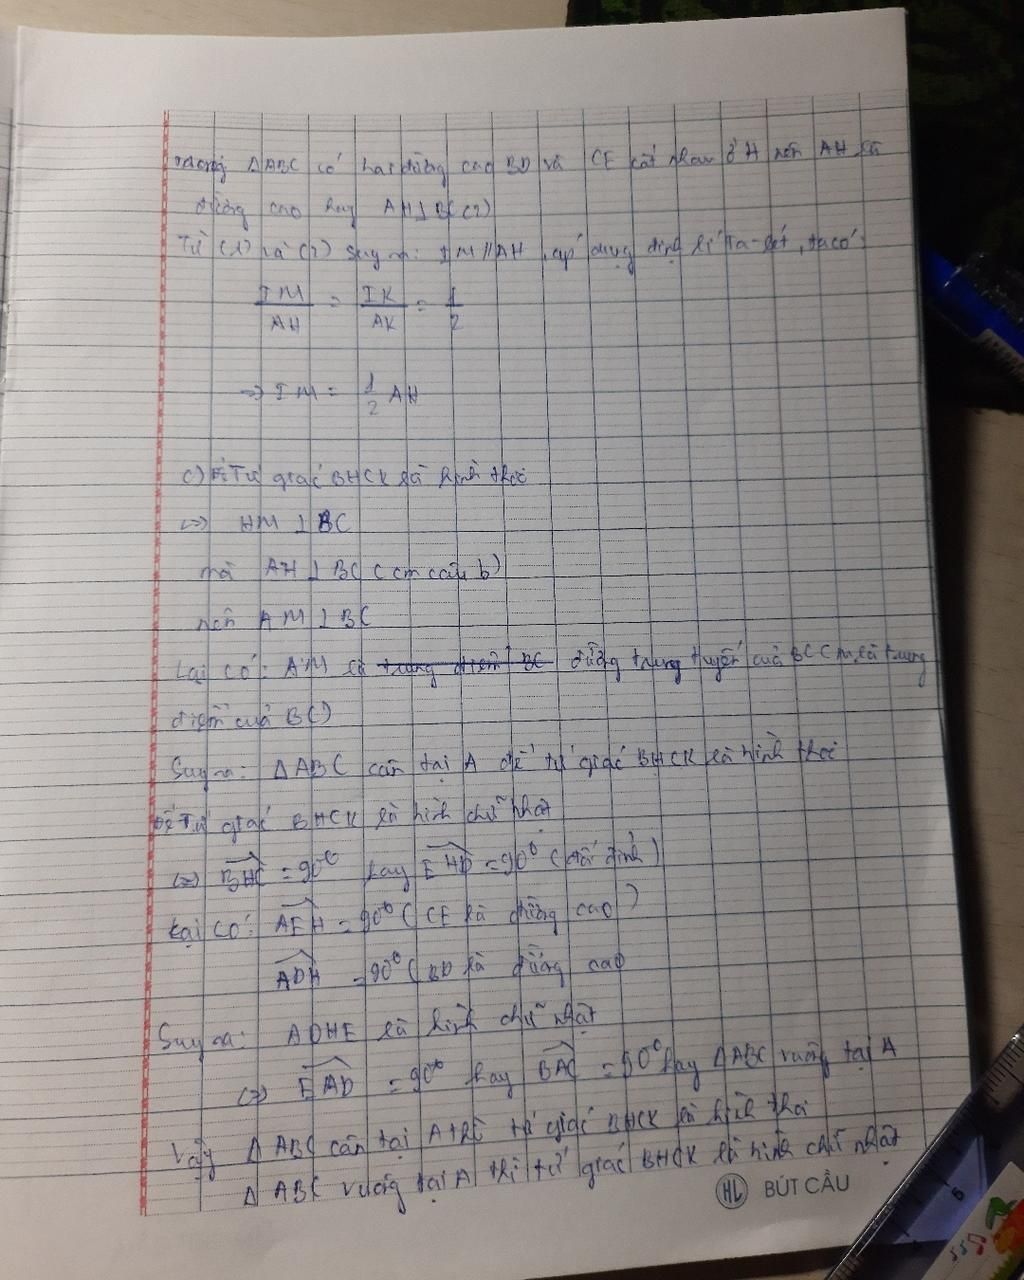 trong ΔABC có hai đường cao BD và CE cắt nhau ở H nên AH là
đường cao hay AH⊥BC(2)
Từ (1) và (2) suy ra: IM//AH, áp dụng định lí Ta-lét, ta có:
IM/AH = IK/AK = 1/2
=> IM = 1/2 AH
c) Tứ giác BHCK là hình thoi
<=> HM ⊥ BC
mà AH ⊥ BC (cm câu b)
nên AM ⊥ BC
Lại có: AM là trung điểm BC đường trung tuyến của BC (M là trung
điểm của BC)
Suy ra: ΔABC cân tại A để tứ giác BHCK là hình thoi
Để Tứ giác BHCK là hình chữ nhật
<=> BHC = 90° hay EHD = 90° (đối đỉnh)
Lại có: AEH = 90° (CE là đường cao)
ADH = 90° (BD là đường cao
Suy ra: ADHE là hình chữ nhật
<=> EAD = 90° hay BAC = 90° hay ΔABC vuông tại A
Vậy Δ ABC cân tại A thì tứ giác BHCK là hình thoi
Δ ABC vuông tại A thì tứ giác BHCK là hình chữ nhật
HL BÚT CẦU